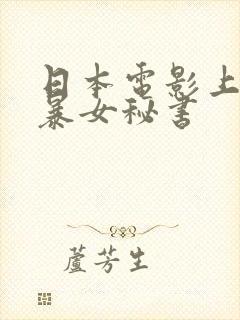 日本電影上
暴女秘書
蘆芳生